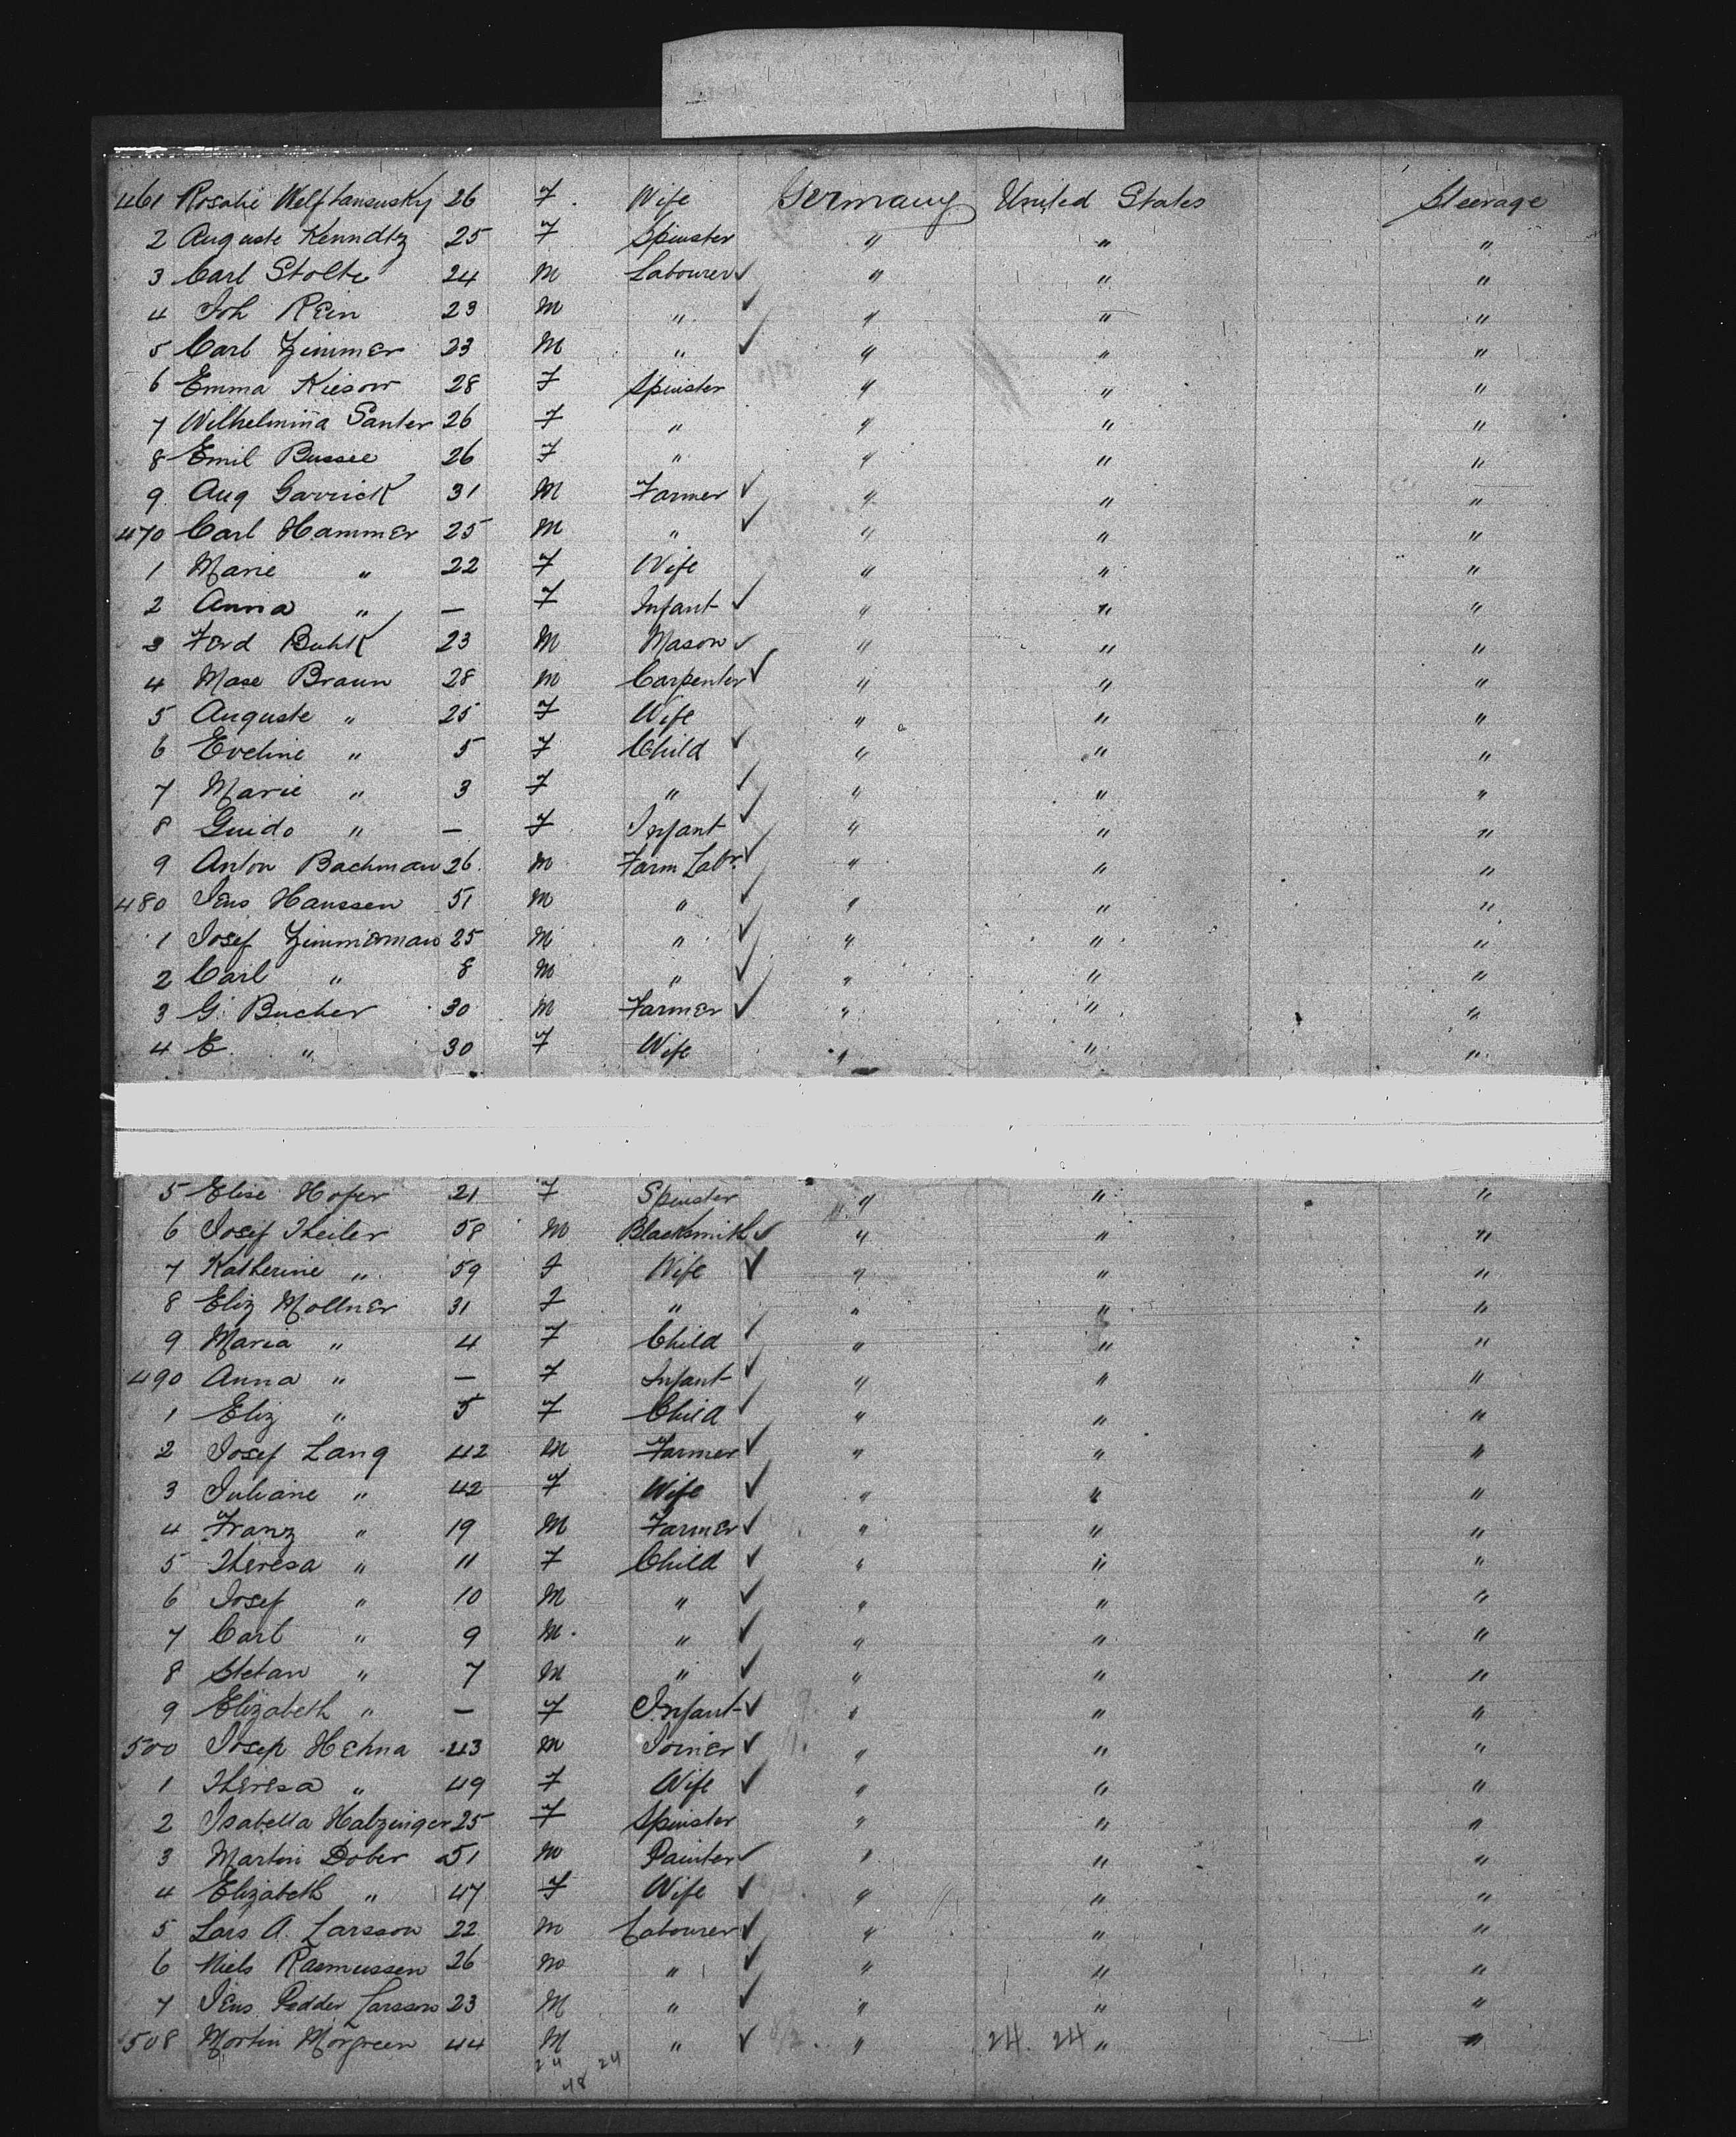 461 Rosalie 26 F Wife Germany United States Steerage
2 Auguste Kenndtz 25 F Spinster " " "
3 Carl Stolte 24 M Labourer " " "
4 Joh Rein 23 M " " " "
5 Carl Zimmer 23 M " " " "
6 Emma Kiesow 28 F Spinster " " "
7 Wilhelmina Santer 26 F " " " "
8 Emil Bussee 26 F " " " "
9 Aug Garrick 31 M Farmer " " "
470 Carl Hammer 25 M " " " "
1 Marie " 22 F Wife " " "
2 Anna " — F Infant " " "
3 Ferd Buhk 23 M Mason " " "
4 Mase Braun 28 M Carpenter " " "
5 Auguste " 25 F Wife " " "
6 Eveline " 5 F Child " " "
7 Marie " 3 F " " " "
8 Guido " — F Infant " " "
9 Anton Bachman 26 M Farm Labr " " "
480 Jens Hanssen 51 M " " " "
1 Josef Zimmerman 25 M " " " "
2 Carl " 8 M " " " "
3 G. Bucher 30 M Farmer " " "
4 E. " 30 F Wife " " "
5 Elise Hofer 21 F Spinster " " "
6 Josef Theiler 58 M Blacksmith " " "
7 Katherine " 59 F Wife " " "
8 Eliz Mollner 31 F " " " "
9 Maria " 4 F Child " " "
490 Anna " — F Infant " " "
1 Eliz " 5 F Child " " "
2 Josef Lang 42 M Farmer " " "
3 Juliane " 42 F Wife " " "
4 Franz " 19 M Farmer " " "
5 Theresa " 11 F Child " " "
6 Josef " 10 M " " " "
7 Carl " 9 M " " " "
8 Stefan " 7 M " " " "
9 Elizabeth " — F Infant " " "
500 Josep Hehna 43 M Joiner " " "
1 Theresa " 49 F Wife " " "
2 Isabella Halzinger 25 F Spinster " " "
3 Martin Dober 51 M Painter " " "
4 Elizabeth " 47 F Wife " " "
5 Lars A. Larsson 22 M Labourer " " "
6 Niels Rasmussen 26 M " " " "
7 Jens Pedder Larsson 23 M " " " "
508 Martin Morgreen 44 M " " 24. 24 " "
24 24
48